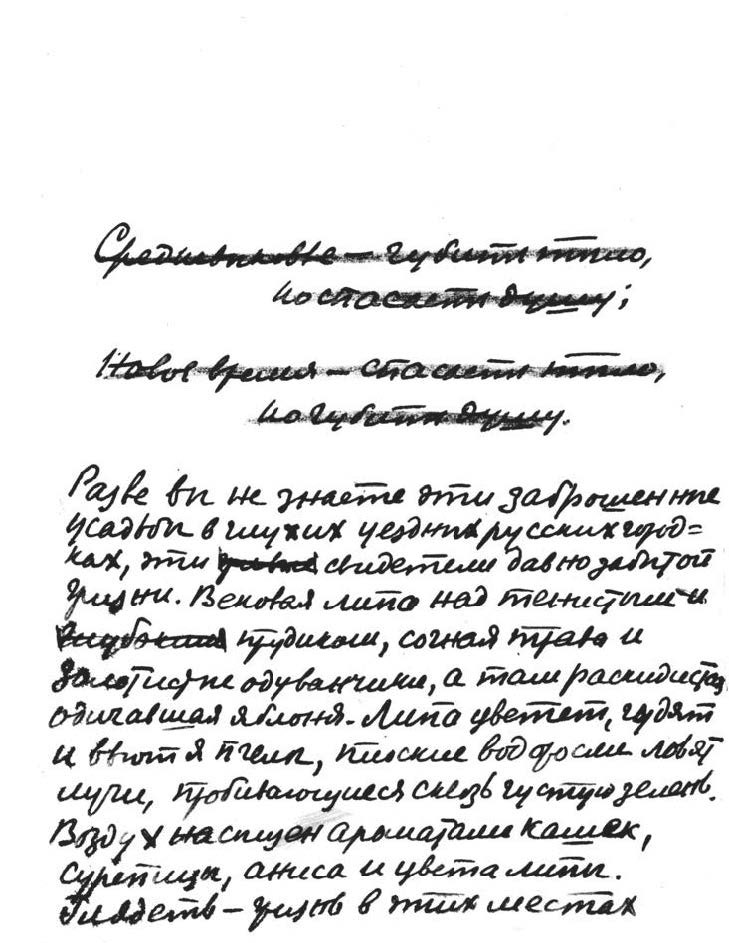 Средневековье — губити тело,
но спасает душу;
Новое время — спасает тело,
но губити душу.
Разве вы не знаете эти заброшенные
усадьбы в глухих уездных русских город=
ках, эти свидетели давно забытой
жизни. Вековая липа над тенистым и
прудиком, сочная трава и
Золотистые одуванчики, а там раскидистая
одичавшая яблоня. Липа цветет, гудят
и вьются пчелы, плоские водоросли ловят
лучи, пробивающиеся сквозь густую зелень.
Воздух насыщен ароматами кашек,
сурепицы, аниса и цвета липы.
Глядеть — жизнь в этих местах